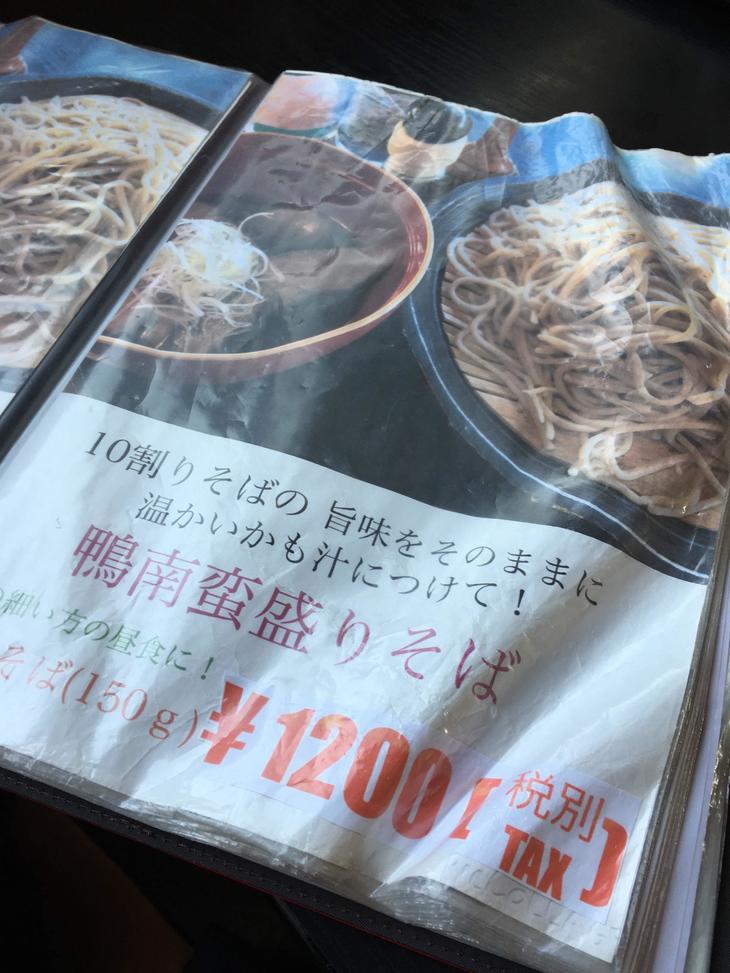 10割りそばの 旨味をそのままに
温かいかも汁につけて！
鴨南蛮盛りそば
の細い方の昼食に！
そば(150ｇ)¥1200【税別
TAX】